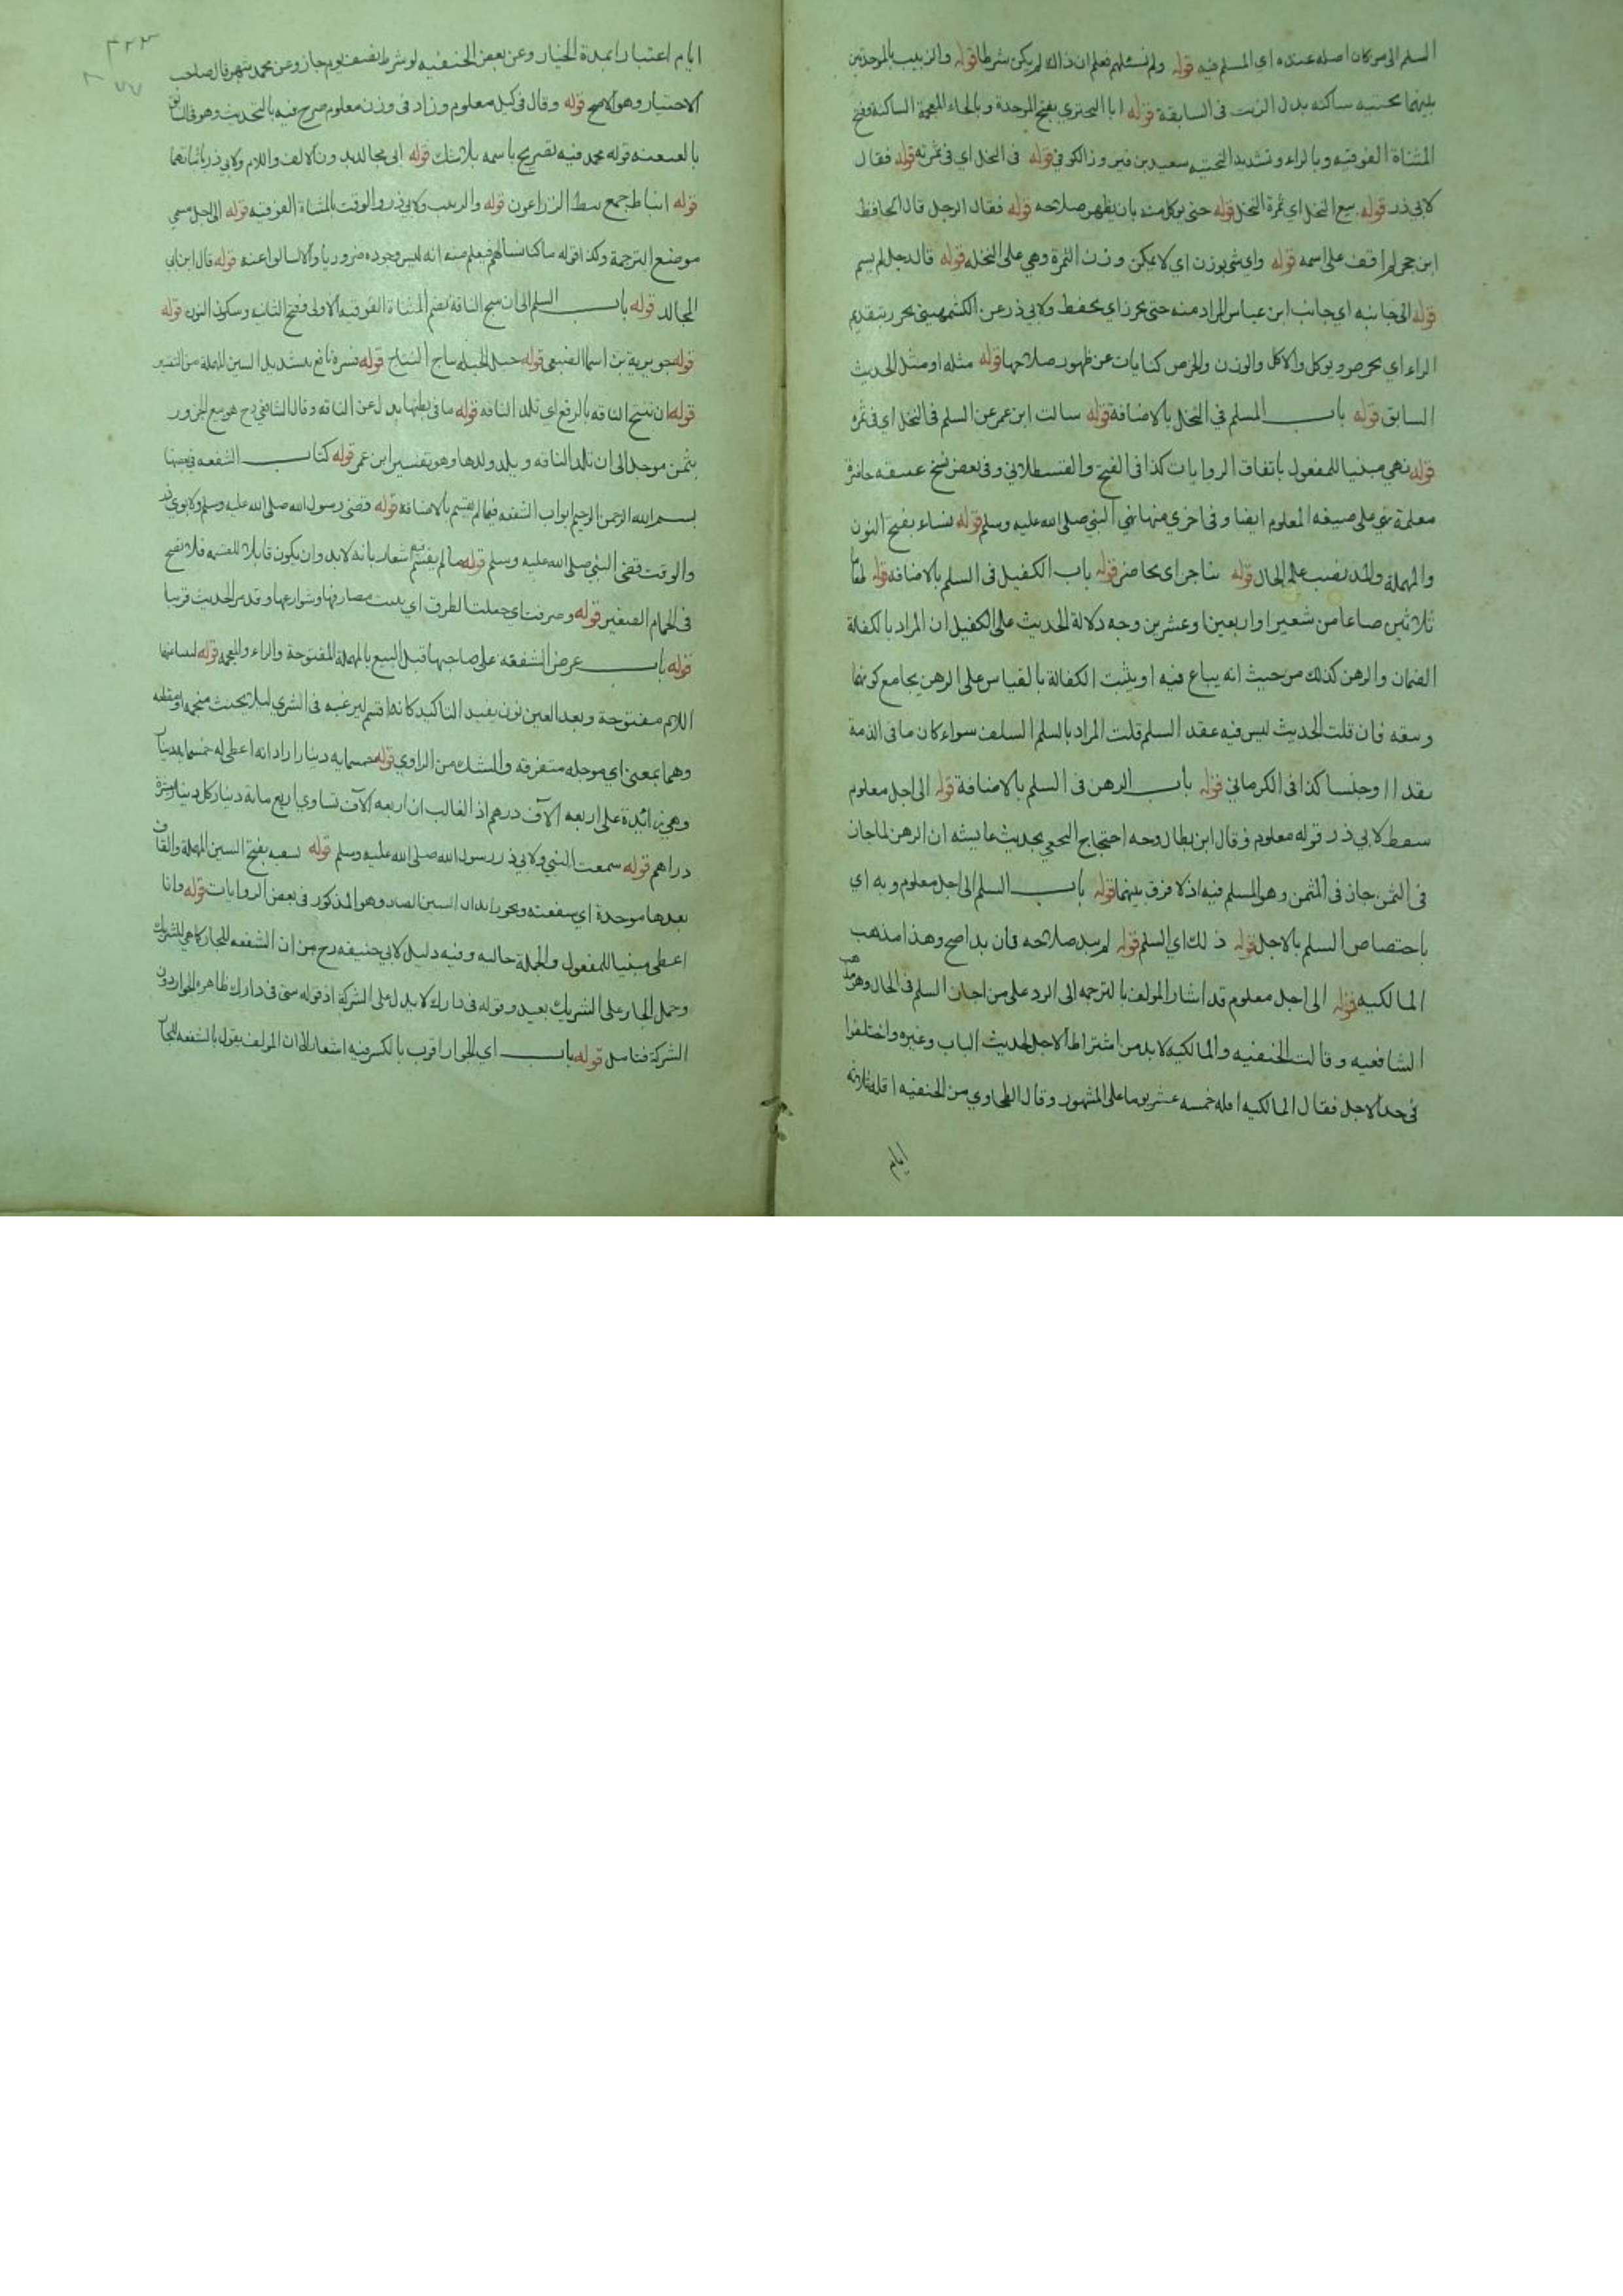 السلم الى من كان اصله عنده اي المسلم فيه قوله ولم نسئلهم فعلم ان ذالك لم يكن شرطا قوله والزبيب بالموحدتين
بينهما تحتيه ساكنه بدل الزيت فى السابقة قوله ابا البحتري بفتح الموحدة وبالخاء المعجمة الساكنة وفتح
المثناة الفوقيه وبالراء وتشديد التحتيه سعيد بن فيروز الكوفي قوله فى النخل اي فى ثمرته قوله فقال
لابي ذر قوله بيع النخل اي ثمرة النخل قوله حتى يوكل منه بان يظهر صلاحه قوله فقال الرجل قال الحافظ
ابن حجر لم اقف على اسمه قوله واي شي يوزن اي لا يمكن وزن الثمرة وهي على النخله قوله قال رجل لم يسم
قوله الى جانبه اي جانب ابن عباس المراد منه حتى يحرز اي يحفظ ولابي ذر عن الكشمهيني يحرر بتقديم
الراء اي يخرص ويوكل والاكل والوزن والخرص كنايات عن ظهور صلاحها قوله مثله او مثل الحديث
السابق قوله باب السلم في النخل بالاضافة قوله سالت ابن عمر عن السلم فى النخل اي فى ثمره
قوله نهي مبنيا للمفعول باتفاق الروايات كذا فى الفتح والقسطلاني وفى بعض نسخ عتيقه حاضرة
معلمة نهي على صيغه المعلوم ايضا وفى اخري منها نهي النبي صلى الله عليه وسلم قوله نساء بفتح النون
والمهملة والمد نصب على الحال قوله بناجز اى بحاضر قوله باب الكفيل فى السلم بالاضافه قوله طعاما
ثلاثين صاعا من شعير او اربعين او عشرين وجه دلالة الحديث على الكفيل ان المراد بالكفالة
الضمان والرهن كذلك من حيث انه يباع فيه او يثبت الكفالة بالقياس على الرهن بجامع كونهما
وثقه فان قلت الحديث ليس فيه عقد السلم قلت المراد بالسلم السلف سواء كان ما فى الذمة
نقدا او جنسا كذا فى الكرماني قوله باب الرهن فى السلم بالاضافة قوله الى اجل معلوم
سقط لابي ذر قوله معلوم وقال ابن بطال وجه احتجاج النخعي بحديث عايشه ان الرهن لما جاز
فى الثمن جاز فى المثمن وهو المسلم فيه اذ لا فرق بينهما قوله باب السلم الى اجل معلوم وبه اي
باختصاص السلم بالاجل قوله ذلك اي السلم قوله لم يبد صلاحه فان بدا صح وهذا مذهب
المالكيه قوله الى اجل معلوم قد اشار المولف بالترجمه الى الرد على من اجاز السلم فى الحال وهو مذهب
الشافعيه وقالت الحنفيه والمالكيه لا بد من اشتراط الاجل لحديث الباب وغيره واختلفوا
فى حد الاجل فقال المالكيه اقله خمسه عشر يوما على المشهور وقال الطحاوي من الحنفيه اقله ثلاثه
ايام
٤٢٣
ايام اعتبارا بمدة الخيار وعن بعض الحنفيه لو شرط نصف يوم جاز وعن محمد شهر قال صاحب
الاختيار وهو الاصح قوله وقال فى كيل معلوم وزاد فى وزن معلوم صرح فيه بالتحديث وهو فى السابق
بالعنعنه قوله محمد فيه تصريح باسمه بلا شك قوله ابى مجالد بدون الالف واللام ولابي ذر باثباتهما
قوله انباط جمع نبط الزراعون قوله والزيت ولابي ذر والوقت بالمثناة الفوقيه قوله الى اجل مسمى
موضع الترجمة وكذا قوله ما كنا نسالهم فيعلم منه انه ليس وجوده ضروريا والا لسالوا عنه قوله قال ابن ابي
المجالد قوله باب السلم الى ان تنتج الناقة بضم المثناة الفوقيه الاولى وفتح الثانيه وسكون النون قوله
قوله جويرية بن اسما الضبعي قوله حبل الحبله نتاج النتاج قوله فسره نافع بتشديد السين المهملة من التفسير
قوله ان تنتج الناقه بالرفع اي تلد الناقه قوله ما فى بطنها بدل عن الناقه وقال الشافعي رح هو بيع الجزور
بثمن موجل الى ان تلد الناقه ويلد ولدها وهو تفسير ابن عمر قوله كتاب الشفعه
بسم الله الرحمن الرحيم ابواب الشفعه فيما لم يقسم بالاضافه قوله قضى رسول الله صلى الله عليه وسلم ولابوي ذر
والوقت قضى النبي صلى الله عليه وسلم قوله ما لم يقسم فيه اشعار بانه لا بد وان يكون قابلا للقسمه فلا تصح
فى الحمام الصغير قوله وصرفت اي جعلت الطرق اي بينت مصارفها وشوارعها وقد مر الحديث قريبا
قوله باب عرض الشفعه على صاحبها قبل البيع بالمهملة المفتوحة والراء والمعجمه قوله
اللام مفتوحة وبعد العين نون يفيد التاكيد كانه اقسم ليرغبه فى الشري ليلا يحنث منجمه او مقطعه
وهما بمعنى اي موجله متفرقه والشك من الراوي قوله خمسمايه دينارا اراد انه اعطى له خمسمايه دينار
وهي زائدة على اربعه الاف درهم اذ الغالب ان اربعه الاف تساوي اربع ماية دينار كل دينار عشرة
دراهم قوله سمعت النبي ولابي ذر رسول الله صلى الله عليه وسلم قوله بسقبه بفتح السين المهملة والقاف
بعدها موحدة اي بسفعته ويجوز ابدال السين الصاد وهو المذكور فى بعض الروايات قوله وانا
اعطي مبنيا للمفعول والجملة حاليه وفيه دليل لابي حنيفه رح من ان الشفعه للجار كما هي للشريك
وحمل الجار على الشريك بعيد وقوله فى دارك لا يدل على الشركة اذ قوله بيتى فى دارك ظاهره الجوار دون
الشركة فتامل قوله باب اي الجوار اقرب بالكسر فيه اشعار الى ان المولف يقول بالشفعه للجار